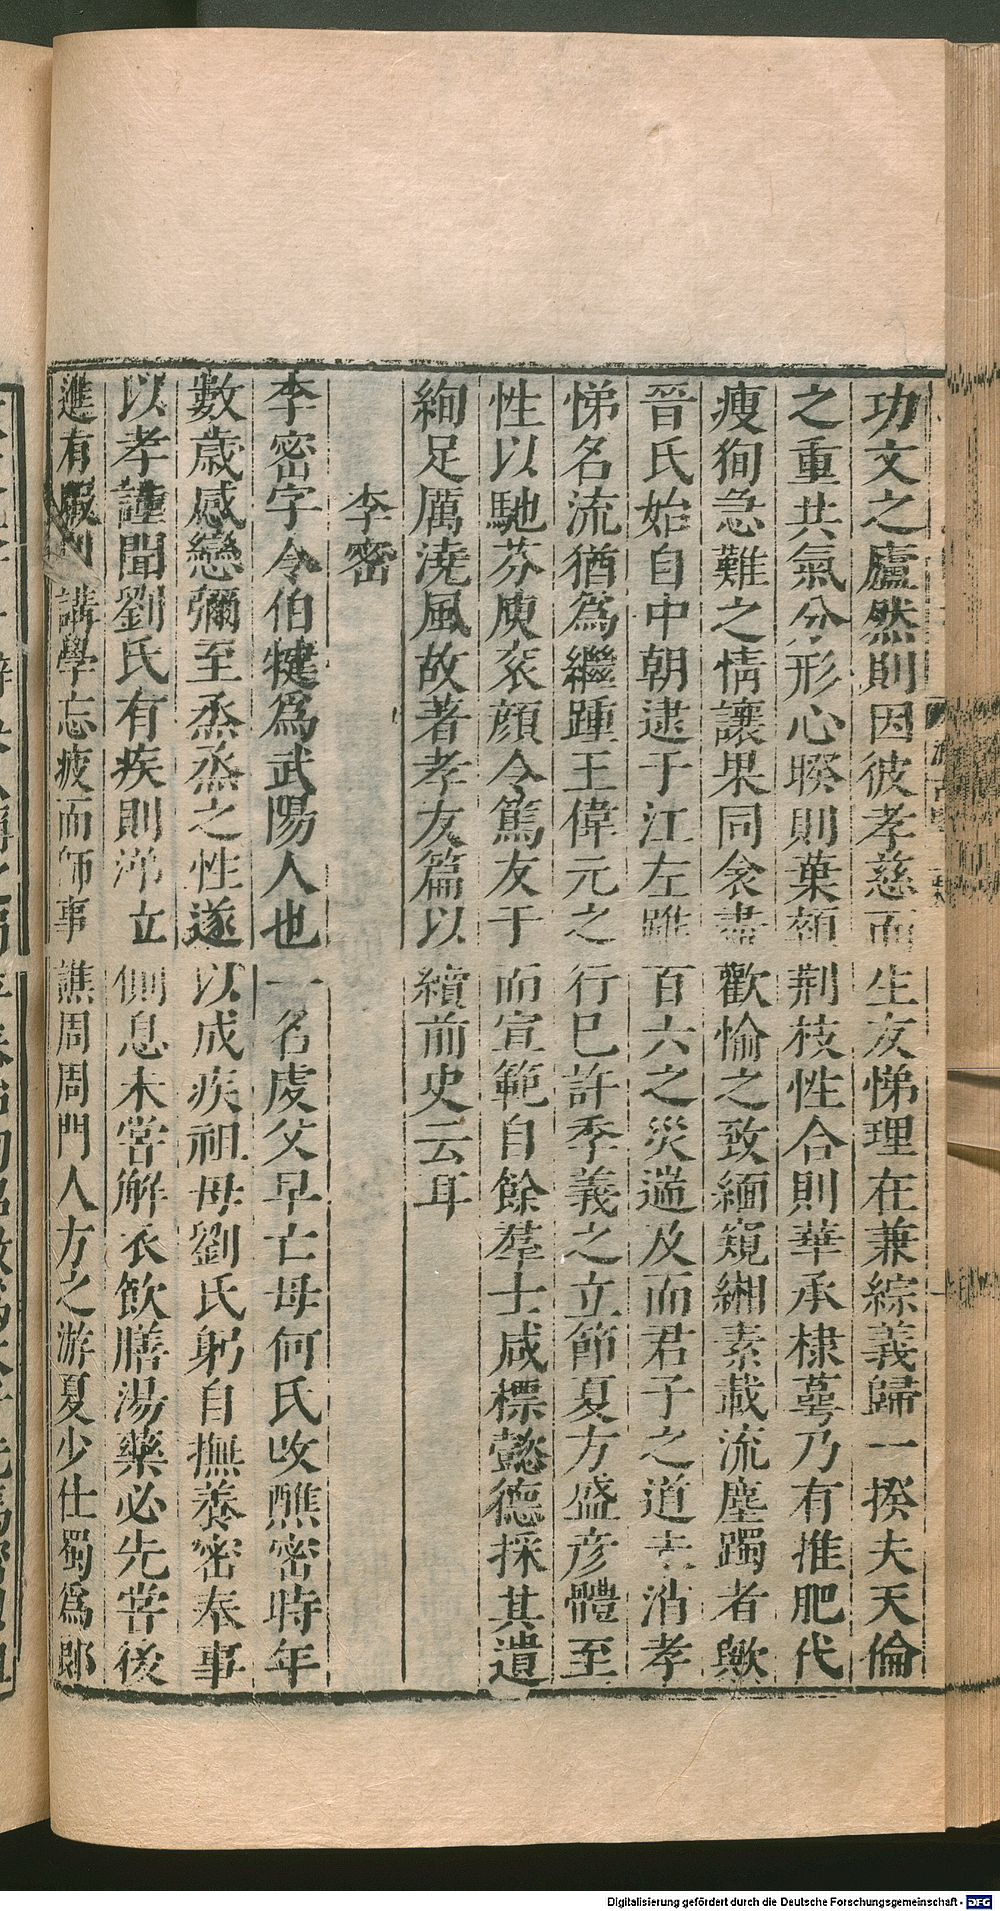 功文之廬然則因彼孝慈而生友悌理在兼綜義歸一揆夫天倫
之重共氣分形心睽則葉顇荆枝性合則華承棣萼乃有推肥代
瘦徇急難之情讓果同衾盡歡愉之致緬窺緗素載流塵躅者歟
晉氏始自中朝逮于江左雖百六之災遄及而君子之道未消孝
悌名流猶為繼踵王偉元之行巳許季義之立節夏方盛彦體至
性以馳芬庾衮顔含篤友于而宣範自餘羣士咸標懿德採其遺
絢足厲澆風故著孝友篇以續前史云耳
李密
李密字令伯犍為武陽人也一名虔父早亡母何氏改醮密時年
數歲感戀彌至烝烝之性遂以成疾祖母劉氏躬自撫養密奉事
以孝謹聞劉氏有疾則涕泣側息未嘗解衣飲膳湯藥必先嘗後
進有暇則講學忘疲而師事譙周周門人方之游夏少仕蜀為郎
Digitalisierung gefördert durch die Deutsche Forschungsgemeinschaft - DFG